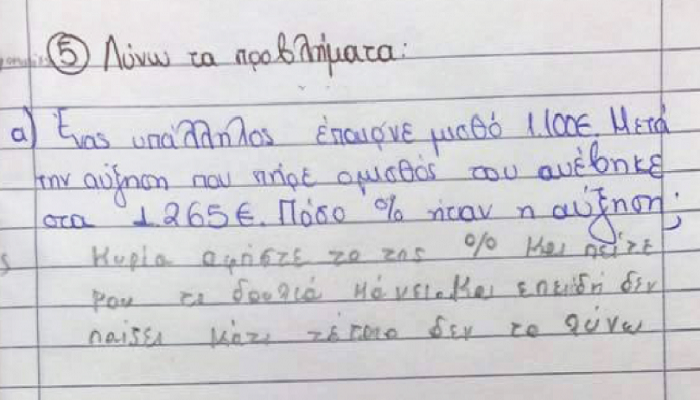 ⑤ Λύνω τα προβλήματα:
α) Ένας υπάλληλος έπαιρνε μισθό 1.100€. Μετά
την αύξηση που πήρε ο μισθός του ανέβηκε
στα 1.265€. Πόσο % ήταν η αύξηση;
Κυρία αφήστε το της % και πείτε
μου τι δουλειά κάνει. Και επειδή δεν
παίζει κάτι τέτοιο δεν το λύνω